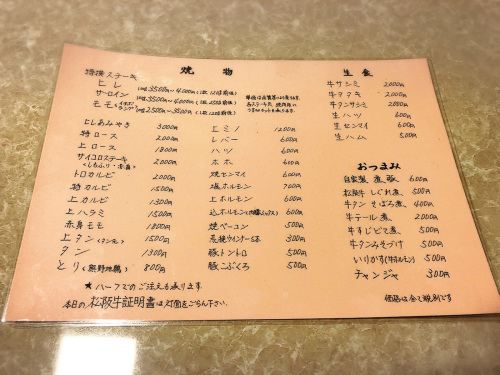 焼物
特撰ステーキ
ヒレ 100g 3500円〜4000円
サーロイン 100g 3500円〜4000円
モモ 100g 2500円〜3500円
ヒレあみやき 3000円
特ロース 2000円
上ロース 1800円
サイコロステーキ 2000円
トロカルビ 2000円
特カルビ 1500円
上カルビ 1300円
上ハラミ 1500円
赤身モモ 1800円
上タン(タン元) 1500円
タン 1300円
とり(熊野地鶏) 800円
ミノ 1200円
レバー 600円
ハツ 600円
焼センマイ 600円
塩ホルモン 700円
上ホルモン 600円
込ホルモン 600円
焼ベーコン 500円
荒挽ウインナー5本 300円
豚トントロ 500円
豚こぶくろ 500円
生食
牛サシミ 2000円
牛タタキ 2000円
牛タンサシミ 2000円
生ハツ 600円
生センマイ 600円
生ハム 500円
おつまみ
自家製煮豚 500円
松阪牛しぐれ煮 500円
牛タンそぼろ煮 400円
牛テール煮 2000円
牛すじどて煮 500円
牛タンみそづけ 500円
いりかす(牛ホルモン) 500円
チャンジャ 300円
★ハーフでのご注文も承ります
本日の松阪牛証明書は灯篭をごらん下さい。
価格は全て税別です